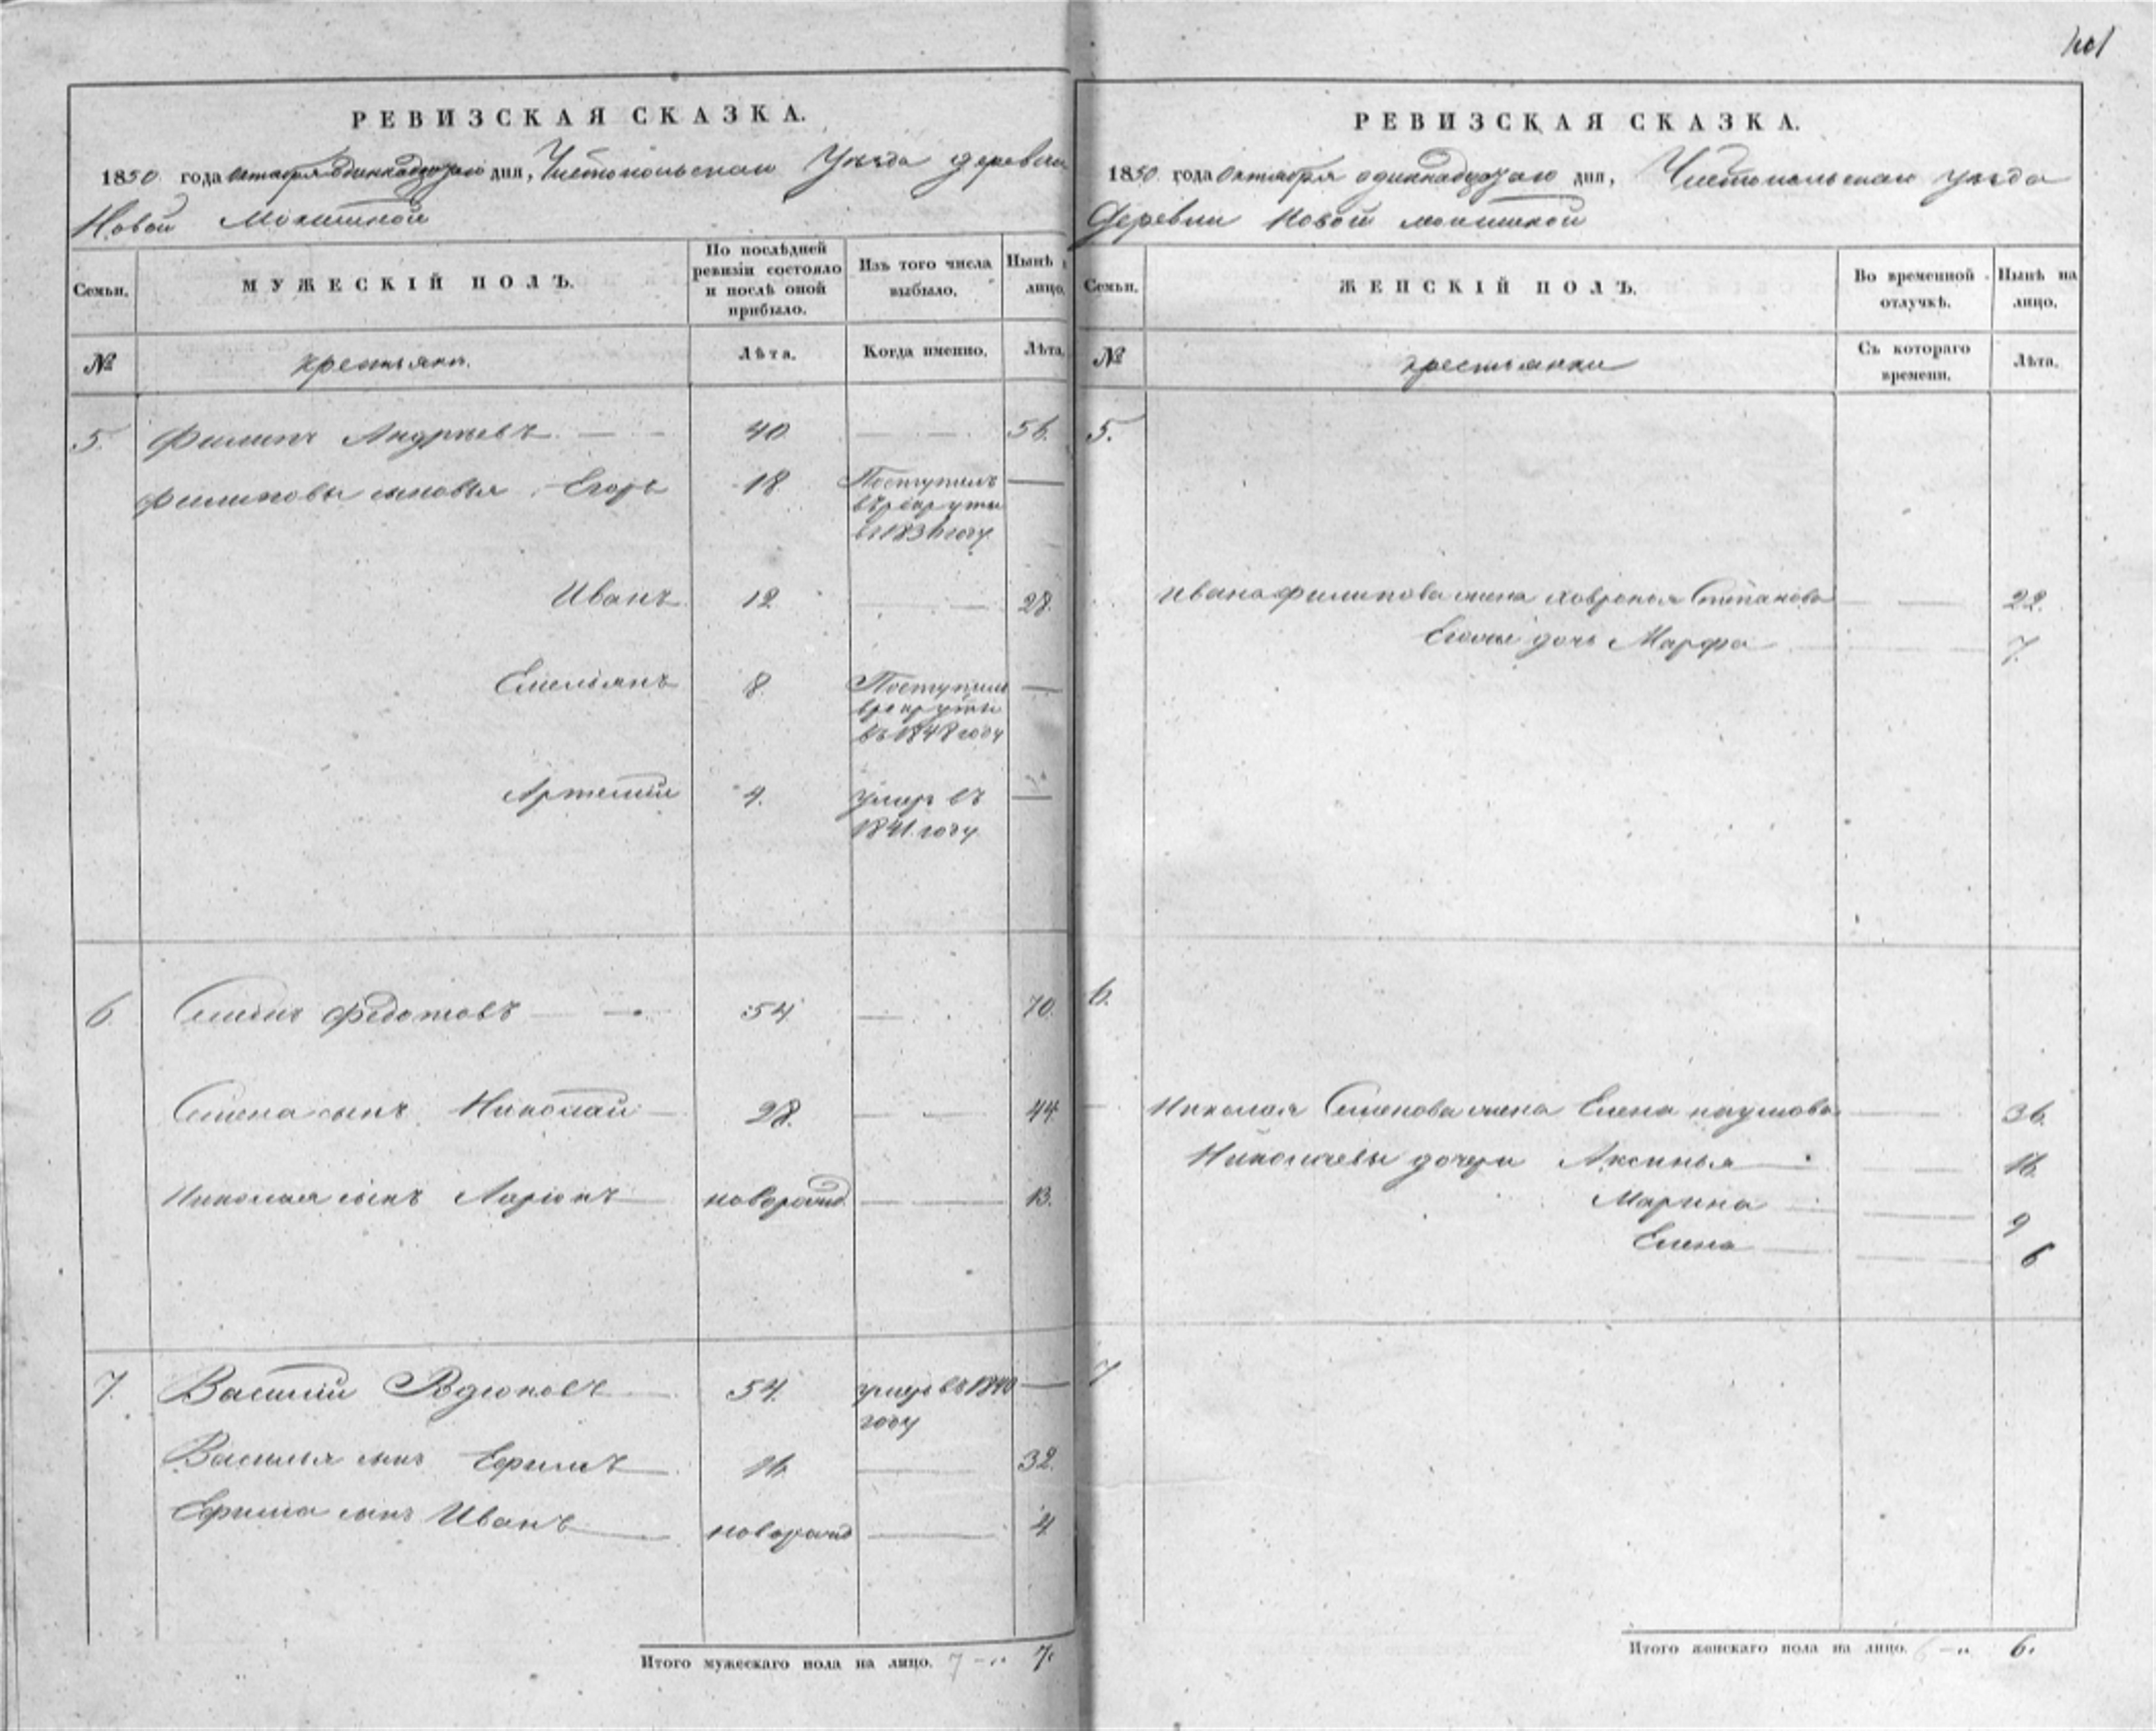 РЕВИЗСКАЯ СКАЗКА.
1850 года октября одиннадцатаго дня, Чистопольскаго Уѣзда деревни
Новой Мокшиной
Семьи.
МУЖЕСКІЙ ПОЛЪ.
По послѣдней ревизіи состояло и послѣ оной прибыло.
Изъ того числа выбыло.
Нынѣ лицо.
№
крестьянъ.
Лѣта.
Когда именно.
Лѣта.
5. Филипъ Андреевъ 40 56.
Филиповы сыновья Егоръ 18 Поступилъ
въ рекруты
въ 1836 году
Иванъ 12 28.
Емельянъ 8. Поступилъ
в рекруты
въ 1848 году
Артемій 4. умеръ въ
1841. году
6 Семенъ Федотовъ 54 70.
Семена сынъ Николай 28. 44
Николая сынъ Ларіонъ новорожд. 13.
7. Василий Родионовъ 54. умеръ въ 1840
году
Василья сынъ Ефимъ 16. 32.
Ефима сынъ Иванъ новорожд 4
Итого мужескаго пола на лицо. 7 7.
101
РЕВИЗСКАЯ СКАЗКА.
1850 года Октября одиннадцатаго дня, Чистопольскаго уѣзда
Деревни Новой мокшиной
Семьи.
ЖЕНСКІЙ ПОЛЪ.
Во временной отлучкѣ.
Нынѣ на лицо.
№
крестьянки
Съ котораго времени.
Лѣта.
5.
Ивана Филипова жена Ховронья Степанова 22.
Егоже дочь Марфа 7.
6.
Николая Семенова жена Елена наумова 36.
Николаевы дочери Аксинья 16
Марина 9
Елена 6
7
Итого женскаго пола на лицо. 6 6.